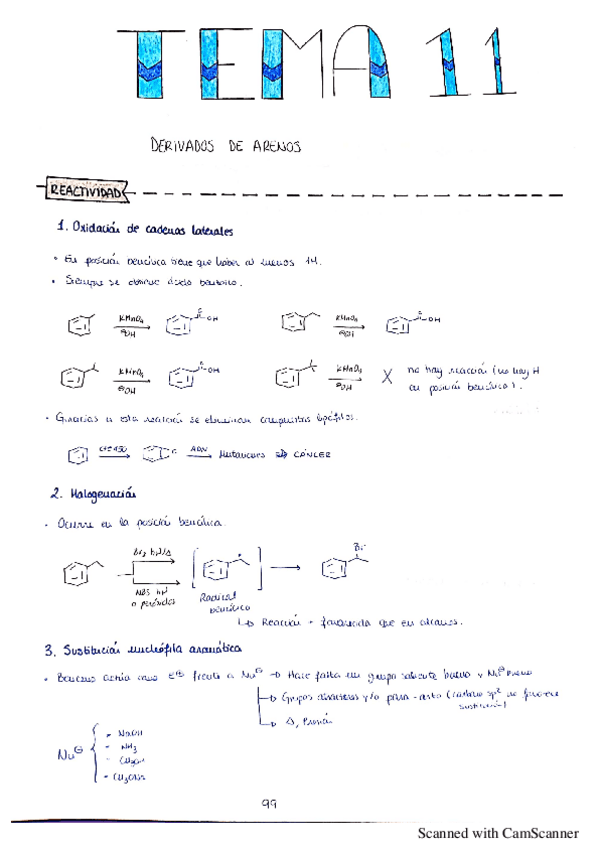 TEMA 11
DERIVADOS DE ARENOS
REACTIVIDAD
1. Oxidación de cadenas laterales
• En posición bencílica tiene que haber al menos 1H.
• Siempre se obtiene ácido benzoico.
KMnO4 ⊖OH O OH KMnO4 ⊖OH O OH
KMnO4 ⊖OH O OH KMnO4 ⊖OH X no hay reacción (no hay H
en posición bencílica).
• Gracias a esta reacción se eliminan compuestos lipófilos.
CYP450 O ADN Mutaciones CÁNCER
2. Halogenación
• Ocurre en la posición bencílica.
Br2, h
NBS, h
o peróxidos
Radical
bencílico
Br
↳ Reacción + favorecida que en alcanos.
3. Sustitución nucleófila aromática
• Benceno actúa como E⊕ frente a Nu⊖ → Hace falta un grupo saliente bueno y Nu⊖ bueno
→ Grupos atractores y/o para-orto (carbono sp2 no favorece
sustitución)
→ Δ, Presión
Nu⊖ {
- NaOH
- NH3
99
Scanned with CamScanner